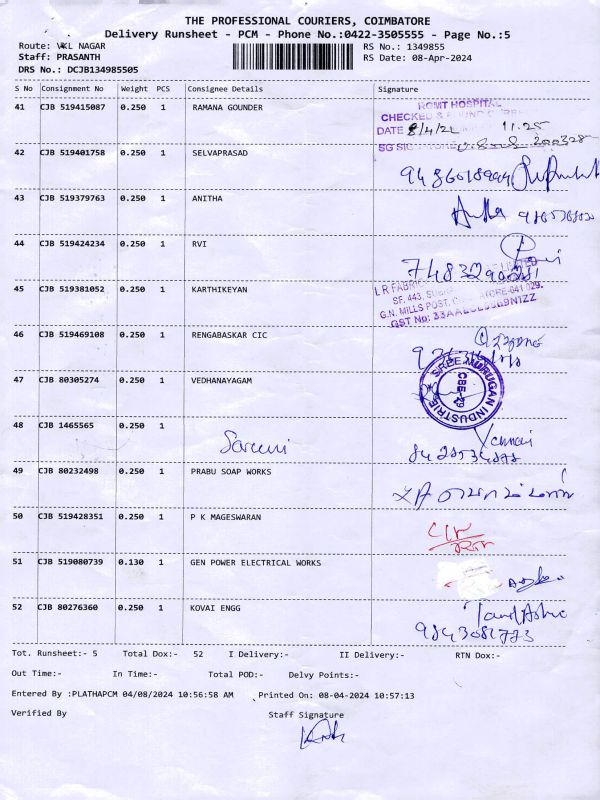 THE PROFESSIONAL COURIERS, COIMBATORE
Delivery Runsheet - PCM - Phone No.:0422-3505555 - Page No.:5
Route: VKL NAGAR RS No.: 1349855
Staff: PRASANTH RS Date: 08-Apr-2024
DRS No.: DCJB134985505
S No Consignment No Weight PCS Consignee Details Signature
41 CJB 519415087 0.250 1 RAMANA GOUNDER
HOSPITAL
CHECKED &
DATE 8/4/24 11.25
SG
42 CJB 519401758 0.250 1 SELVAPRASAD
43 CJB 519379763 0.250 1 ANITHA
Anitha
44 CJB 519424234 0.250 1 RVI
45 CJB 519381052 0.250 1 KARTHIKEYAN
L R FABRI
SF. 443,
G.N. MILLS POST, 641 029.
GST No: 
46 CJB 519469108 0.250 1 RENGABASKAR CIC
47 CJB 80305274 0.250 1 VEDHANAYAGAM
SREE MURUGAN INDUSTRIES
CBE-29
48 CJB 1465565 0.250 1
49 CJB 80232498 0.250 1 PRABU SOAP WORKS
50 CJB 519428351 0.250 1 P K MAGESWARAN
51 CJB 519080739 0.130 1 GEN POWER ELECTRICAL WORKS
52 CJB 80276360 0.250 1 KOVAI ENGG
9843081773
Tot. Runsheet:- 5 Total Dox:- 52 I Delivery:- II Delivery:- RTN Dox:-
Out Time:- In Time:- Total POD:- Delvy Points:-
Entered By :PLATHAPCM 04/08/2024 10:56:58 AM Printed On: 08-04-2024 10:57:13
Verified By Staff Signature